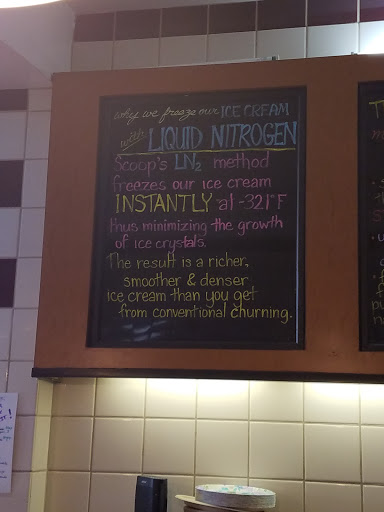 why we freeze our ICE CREAM
with LIQUID NITROGEN
Scoop's LN₂ method
freezes our ice cream
INSTANTLY at -321°F
thus minimizing the growth
of ice crystals.
The result is a richer,
smoother & denser
ice cream than you get
from conventional churning.